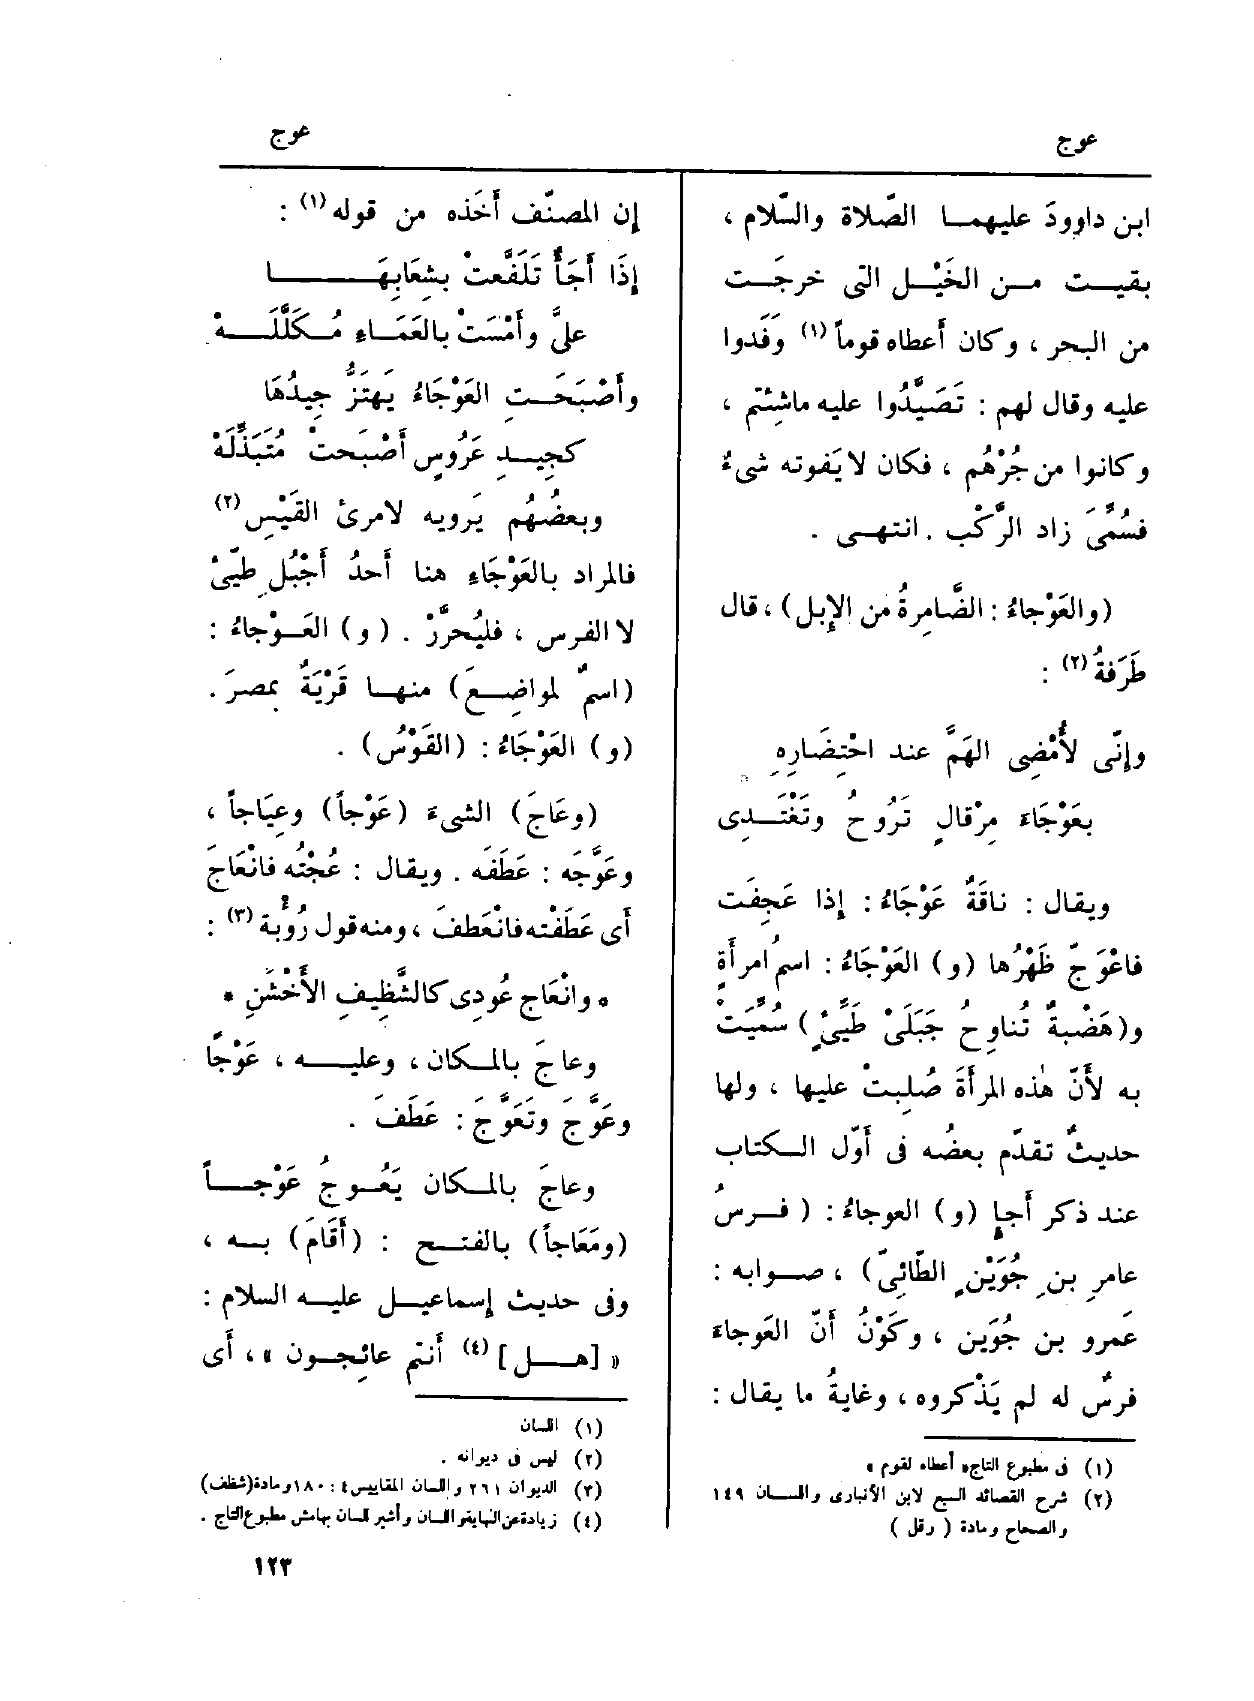 عوج
عوج
ابن داوودَ عليهما الصّلاة والسّلام ،
بقيت من الخَيْل التى خرجَت
من البحر ، وكان أعطاه قوماً (١) وَفَدوا
عليه وقال لهم : تَصَيَّدُوا عليه ماشئتم ،
وكانوا من جُرْهُم ، فكان لا يَفوته شىءٌ
فسُمِّىَ زاد الرَّكْب . انتهى .
(والعَوْجاءُ : الضَّامِرةُ من الإبل) ، قال
طَرَفةُ (٢) :
وإنّى لأُمْضِى الهَمَّ عند احْتِضَارِهِ
بعَوْجَاءَ مِرْقالٍ تَرُوحُ وتَغْتَدِى
ويقال : ناقَةٌ عَوْجَاءُ : إذا عَجِفَت
فاعْوَجّ ظَهْرُها (و) العَوْجَاءُ : اسمُ امرأَةٍ
و(هَضْبةٌ تُناوِحُ جَبَلَىْ طَيِّئٍ) سُمِّيَتْ
به لأَنّ هٰذه المرأَةَ صُلِبتْ عليها ، ولها
حديثٌ تقدّم بعضُه فى أَوّل الكتاب
عند ذكر أَجإٍ (و) العوجاءُ : (فرسُ
عامرِ بنِ جُوَيْنٍ الطّائِىّ) ، صوابه :
عَمرو بن جُوَين ، وكَوْنُ أَنّ العَوجاءَ
فرسٌ له لم يَذْكروه ، وغايةُ ما يقال :
(١) فى مطبوع التاج« أعطاه لقوم »
(٢) شرح القصائد السبع لابن الأنبارى واللسان ١٤٩
والصحاح ومادة ( رقل )
إن المصنّف أَخَذه من قوله (١) :
إذَا أَجَأٌ تَلَفَّعتْ بشِعَابِهَا
علىَّ وأَمْسَتْ بالعَمَاءِ مُكَلَّلَهْ
وأَصْبَحَتِ العَوْجَاءُ يَهتَزُّ جِيدُهَا
كجِيدِ عَرُوسٍ أَصْبَحتْ مُتَبَذِّلَهْ
وبعضُهُم يَرويه لامرئ القَيْسِ (٢)
فالمراد بالعَوْجَاءِ هنا أَحدُ أَجْبُلِ طيّئ
لا الفرس ، فليُحرَّرْ . (و) العَوْجاءُ :
(اسمٌ لمواضِعَ) منها قَرْيَةٌ بمصرَ .
(و) العَوْجَاءُ : (القَوْسُ) .
(وعَاجَ) الشىءَ (عَوْجاً) وعِيَاجاً ،
وعَوَّجَه : عَطَفَه . ويقال : عُجْتُه فانْعَاجَ
أى عَطَفْته فانْعَطفَ ، ومنه قول رُؤْبة (٣) :
* وانْعَاج عُودِى كالشَّظِيفِ الأَخْشَنِ *
وعاجَ بالمكان ، وعليه ، عَوْجًا
وعَوَّجَ وتَعَوَّجَ : عَطَفَ .
وعاجَ بالمكان يَعُوجُ عَوْجاً
(ومَعَاجاً) بالفتح : (أَقَامَ) به ،
وفى حديث إسماعيل عليه السلام :
« [هل] (٤) أَنتم عائجون » ، أَى
(١) اللسان
(٢) ليس فى ديوانه .
(٣) الديوان ٢٦١ واللسان المقاييس ٤ : ١٨٠ ومادة (شظف)
(٤) زيادة عن النهاية واللسان وأشير للسان بهامش مطبوع التاج .
١٢٣